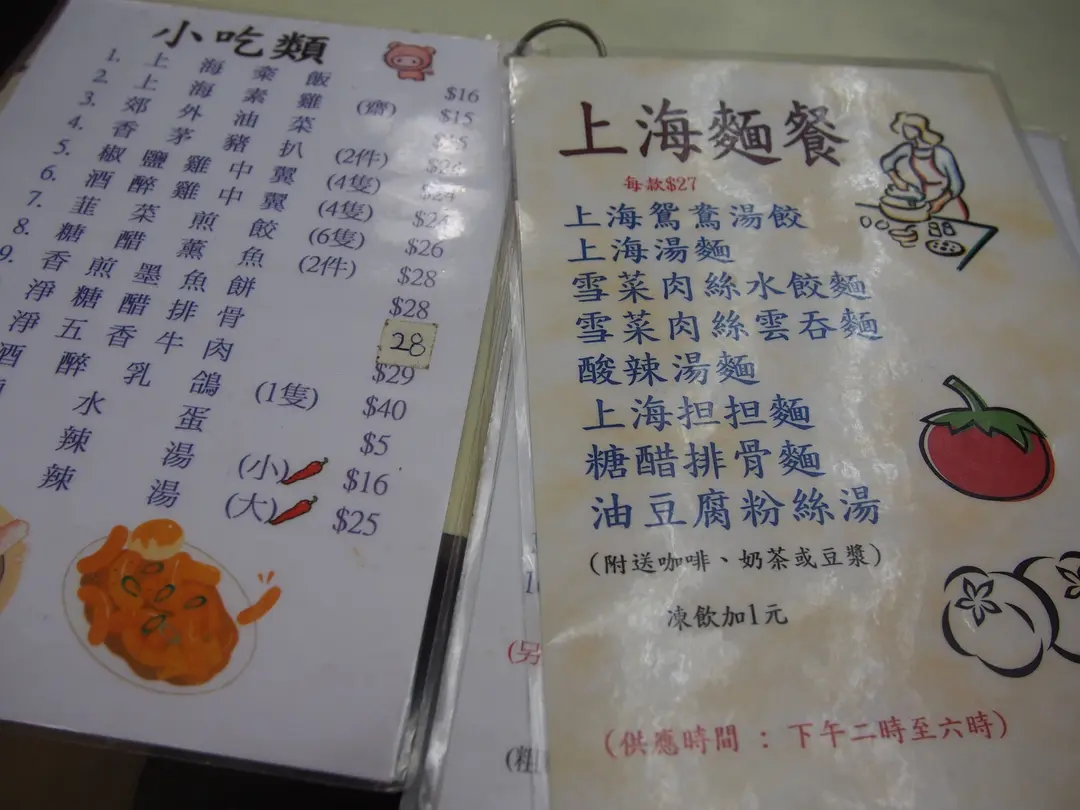 小吃類
1. 上海粢飯 $16
2. 上海素雞 (齋) $15
3. 郊外油菜
4. 香茅豬扒 (2件) $24
5. 椒鹽雞中翼 (4隻) $24
6. 酒醉雞中翼 (4隻) $24
7. 韮菜煎餃 (6隻) $26
8. 糖醋薰魚 (2件) $28
9. 香煎墨魚餅 $28
淨糖醋排骨 28
淨五香牛肉 $29
酒醉乳鴿 (1隻) $40
水蛋 $5
辣湯 (小) $16
辣湯 (大) $25
上海麵餐
每款$27
上海鴛鴦湯餃
上海湯麵
雪菜肉絲水餃麵
雪菜肉絲雲吞麵
酸辣湯麵
上海担担麵
糖醋排骨麵
油豆腐粉絲湯
(附送咖啡、奶茶或豆漿)
凍飲加1元
(供應時間 : 下午二時至六時)
(另
(粗